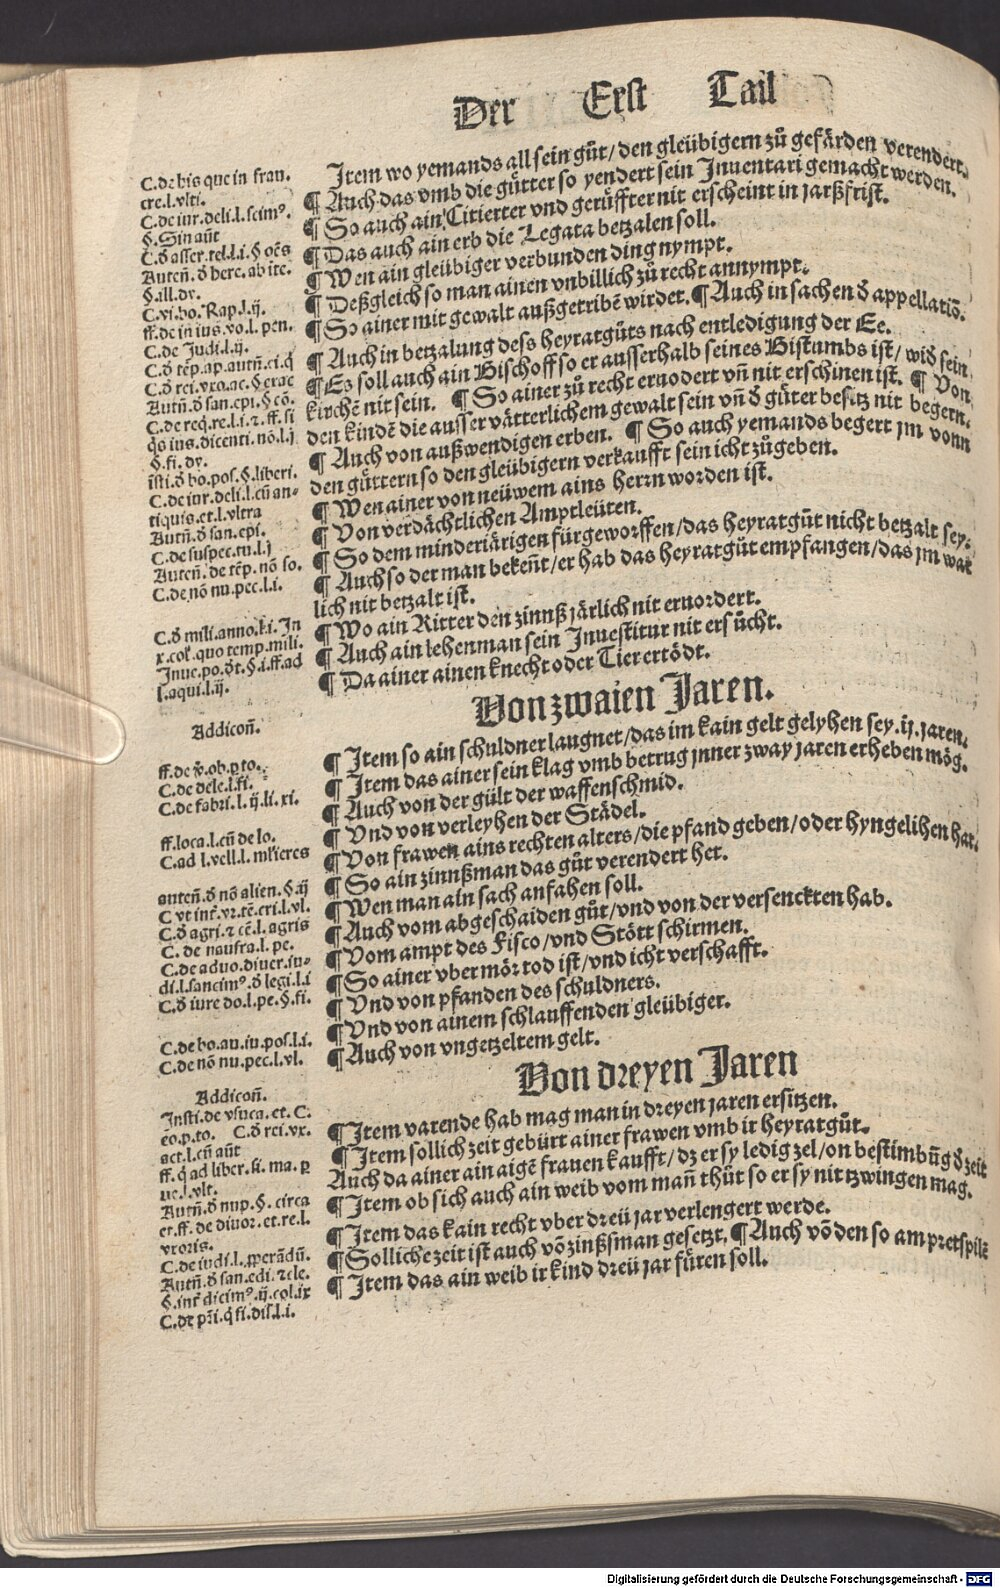 Der Erst Tail
Item wo yemands all sein gůt / den gleübigern zů gefärden verendert.
¶ Auch das vmb die gütter so yendert sein Inuentari gemacht werden.
¶ So auch ain Citierter vnd gerüffter nit erscheint in jarßfrist.
¶ Das auch ain erb die Legata betzalen soll.
¶ Wen ain gleübiger verbunden ding nympt.
¶ Deßgleich so man ainen vnbillich zů recht annympt.
¶ So ainer mit gewalt außgetribẽ wirdet. ¶ Auch in sachen ð appellatiõ.
¶ Auch in betzalung dess heyratgůts nach entledigung der Ee.
¶ Es soll auch ain Bischoff so er ausserhalb seines Bistumbs ist / wið sein
kirchẽ nit sein. ¶ So ainer zů recht eruodert vñ nit erschinen ist. ¶ Von
den kindẽ die ausser vätterlichem gewalt sein vñ ð güter besitz nit begern.
¶ Auch von außwendigen erben. ¶ So auch yemands begert jm vonn
den güttern so den gleübigern verkaufft sein icht zůgeben.
¶ Wen ainer von neüwem ains herrn worden ist.
¶ Von verdächtlichen Amptleüten.
¶ So dem minderjärigen fürgeworffen / das heyratgůt nicht betzalt sey.
¶ Auch so der man bekeñt / er hab das heyratgůt empfangen / das jm war
lich nit betzalt ist.
¶ Wo ain Ritter den zinnß järlich nit eruordert.
¶ Auch ain lehenman sein Inuestitur nit ersůcht.
¶ Da ainer ainen knecht oder Tier ertödt.
Von zwaien Jaren.
¶ Item so ain schuldner laugnet / das im kain gelt gelyhen sey .ij. jaren.
¶ Item das ainer sein klag vmb betrug jnner zway jaren erheben mög.
¶ Auch von der gült der waffenschmid.
¶ Vnd von verleyhen der Städel.
¶ Von frawen ains rechten alters / die pfand geben / oder hyngelihen hat.
¶ So ain zinnßman das gůt verendert het.
¶ Wen man ain sach anfahen soll.
¶ Auch vom abgeschaiden gůt / vnd von der versenckten hab.
¶ Vom ampt des Fisco / vnd Stött schirmen.
¶ So ainer vber mör tod ist / vnd icht verschafft.
¶ Vnd von pfanden des schuldners.
¶ Vnd von ainem schlauffenden gleübiger.
¶ Auch von vngetzeltem gelt.
Von dreyen Jaren
¶ Item varende hab mag man in dreyen jaren ersitzen.
¶ Item sollich zeit gebürt ainer frawen vmb ir heyratgůt.
Auch da ainer ain aigẽ frauen kaufft / dz er sy ledig zel / on bestimbũg ð zeit
¶ Item ob sich auch ain weib vom mañ thůt so er sy nit tzwingen mag.
¶ Item das kain recht vber dreü jar verlengert werde.
¶ Solliche zeit ist auch võ zinßman gesetzt. ¶ Auch võ den so am pretspilẽ
¶ Item das ain weib ir kind dreü jar füren soll.
C. de his que in frau.
cre. l. vlti.
C. de iur. deli. l. scimꝰ.
§. Sin aũt
C. ð asser. rel. l. i. § oẽs
Auten̄. ð here. ab ite.
§. ill. dr.
C. vi. bo. Rap. l. ij.
ff. de in ius. vo. l. pen.
C. de Judi. l. ij.
C. ð tẽp. ap. autñ. ei. q̇
C. ð rei. vxo. ac. § exac
Autñ. ð san. epi. § cõ.
C. de req. re. l. i. ⁊. ff. si
q̇s ius. dicenti. nõ. l. j
§. fi. dr.
īsti. ð bo. pos. §. liberi.
C. de iur. deli. l. cũ an-
tiquis. et. l. vltra
Autñ. ð san. epi.
C. de suspec. tu. l. j
Auten̄. de tẽp. nõ so.
C. de nõ nu. pec. l. i.
C. ð mili. anno. li. In
x. col. quo temp. mili.
Inue. po. ðt. §. i. ff. ad
l. aqui. l. ij.
Addicoñ.
C. de dele. l. fi.
C. de fabri. l. ij. li. xi.
ff. loca. l. cũ de lo.
C. ad l. vell. l. ml'ieres
auten̄. ð nõ alien. §. ij
C. ð agri. ⁊ cẽ. l. agris
C. de naufra. l. pe.
C. de aduo. diuer. iu-
di. l. sancimꝰ. ð legi. l. i
C. ð iure do. l. pe. §. fi.
C. de bo. au. iu. pos. l. i.
C. de nõ nu. pec. l. vl.
Addicoñ.
Insti. de vsuca. et. C.
eo. p. to. C. ð rei. vx.
act. l. cũ aũt
ff. q̇ ad liber. si. ma. ꝑ
ue. l. vlt.
Autñ. ð nup. §. circa
et. ff. de diuor. et. re. l.
vxoris.
C. de iudi. l. ꝓperãdũ.
Autñ. ð san. edi. ⁊ cle.
Digitalisierung gefördert durch die Deutsche Forschungsgemeinschaft - DFG